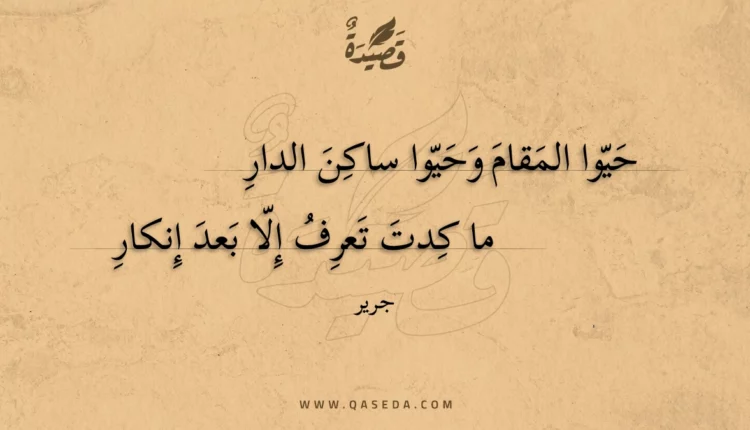 قَصِيدَةٌ
حَيّوا المَقامَ وَحَيّوا ساكِنَ الدارِ
ما كِدتَ تَعرِفُ إِلّا بَعدَ إِنكارِ
جرير
WWW.QASEDA.COM